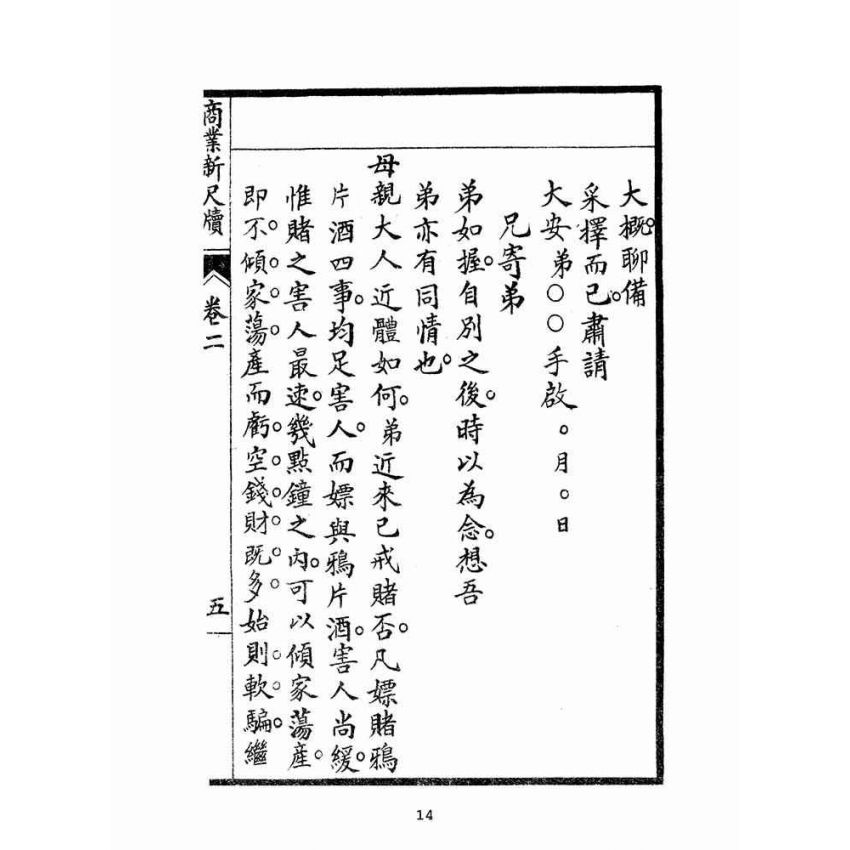 大概。聊備
采擇而已。肅請
大安弟○○手啟。月。日
兄寄弟
弟如握。自別之後。時以為念。想吾
弟亦有同情也。
母親大人近體如何。弟近來已戒賭否。凡嫖賭鴉
片酒四事。均足害人。而嫖與鴉片酒。害人尚緩。
惟賭之害人最速。幾點鐘之內。可以傾家蕩產。
即不傾家蕩產。而虧空錢財既多。始則軟騙。繼
商業新尺牘 卷二 五
14